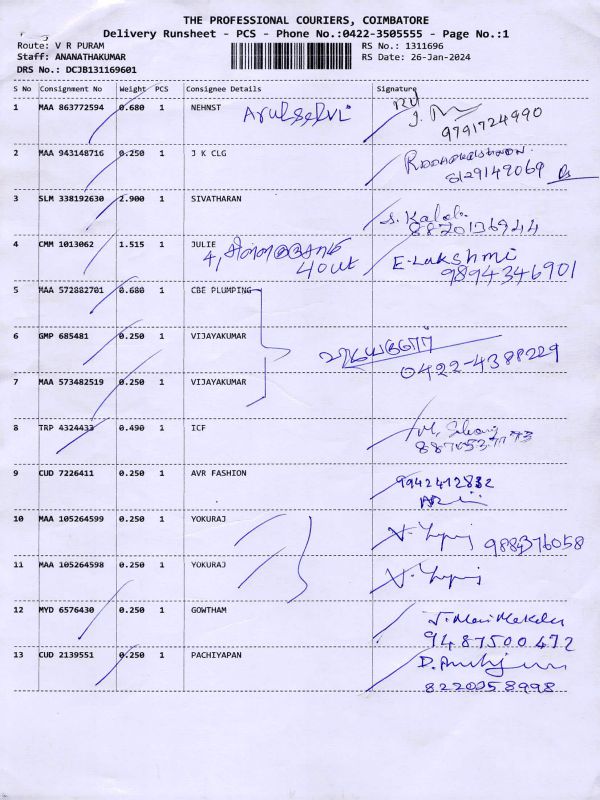 THE PROFESSIONAL COURIERS, COIMBATORE
Delivery Runsheet - PCS - Phone No.:0422-3505555 - Page No.:1
Route: V R PURAM RS No.: 1311696
Staff: ANANATHAKUMAR RS Date: 26-Jan-2024
DRS No.: DCJB131169601
S No Consignment No Weight PCS Consignee Details Signature
1 MAA 863772594 0.680 1 NEHNST Arulselvi
9791724990
2 MAA 943148716 0.250 1 J K CLG
8129149069
3 SLM 338192630 2.900 1 SIVATHARAN S. Kalai
8870136944
4 CMM 1013062 1.515 1 JULIE E. Lakshmi
9894346901
5 MAA 572882701 0.680 1 CBE PLUMPING
6 GMP 685481 0.250 1 VIJAYAKUMAR
0422-4388229
7 MAA 573482519 0.250 1 VIJAYAKUMAR
8 TRP 4324433 0.490 1 ICF
9 CUD 7226411 0.250 1 AVR FASHION 9942412832
10 MAA 105264599 0.250 1 YOKURAJ
11 MAA 105264598 0.250 1 YOKURAJ
12 MYD 6576430 0.250 1 GOWTHAM
9487500472
13 CUD 2139551 0.250 1 PACHIYAPAN
8220358998